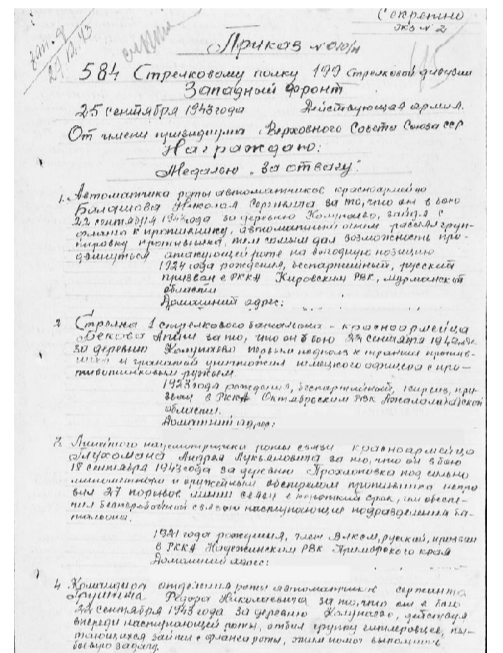 Секретно
Экз № 2
29.12.43
Приказ № 010/н
584 Стрелковому полку 199 Стрелковой дивизии
Западный фронт
25 сентября 1943 года Действующая армия.
От имени президиума Верховного Совета Союза ССР
Награждаю:
Медалью "За отвагу"
1. Автоматчика роты автоматчиков красноармейца
Николая Сергеевича за то, что он в бою
22 сентября 1943 года за деревню зайдя с
фланга к противнику, автоматным огнем рассеял груп-
пировку противника, тем самым дал возможность про-
двинуться атакующей роте на выгодную позицию
1924 года рождения, беспартийный, русский
призван в РККА Кировским РВК, Мурманской
области
Домашний адрес:
2. Стрелка 1 стрелкового батальона - красноармейца
за то, что он в бою 22 сентября
за деревню первым подполз к траншее против-
ника и гранатой уничтожил немецкого офицера с про-
тивотанковым ружьем.
1923 года рождения, беспартийный, киргиз, при-
зван в РККА Октябрьским РВК Джалалабадской
области.
Домашний адрес:
3. Линейного надсмотрщика роты связи красноармейца
Глухомана Андрея Лукьяновича за то, что он в бою
18 сентября 1943 года за деревню под сильно
минометным и оружейным обстрелом противника испра-
вил 27 порывов линии связи в короткий срок,
бесперебойной связью наступающие подразделения ба-
тальона.
1921 года рождения, член ВЛКСМ, русский, призван
в РККА Надеждинским РВК Приморского края
Домашний адрес:
4. Командира отделения роты автоматчиков сержанта
Федора Николаевича за то, что он в бою
22 сентября 1943 года за деревню действуя
впереди наступающей роты, отбил группу гитлеровцев, пы-
тающихся зайти с фланга роты, этим помог выполнить
боевую задачу.